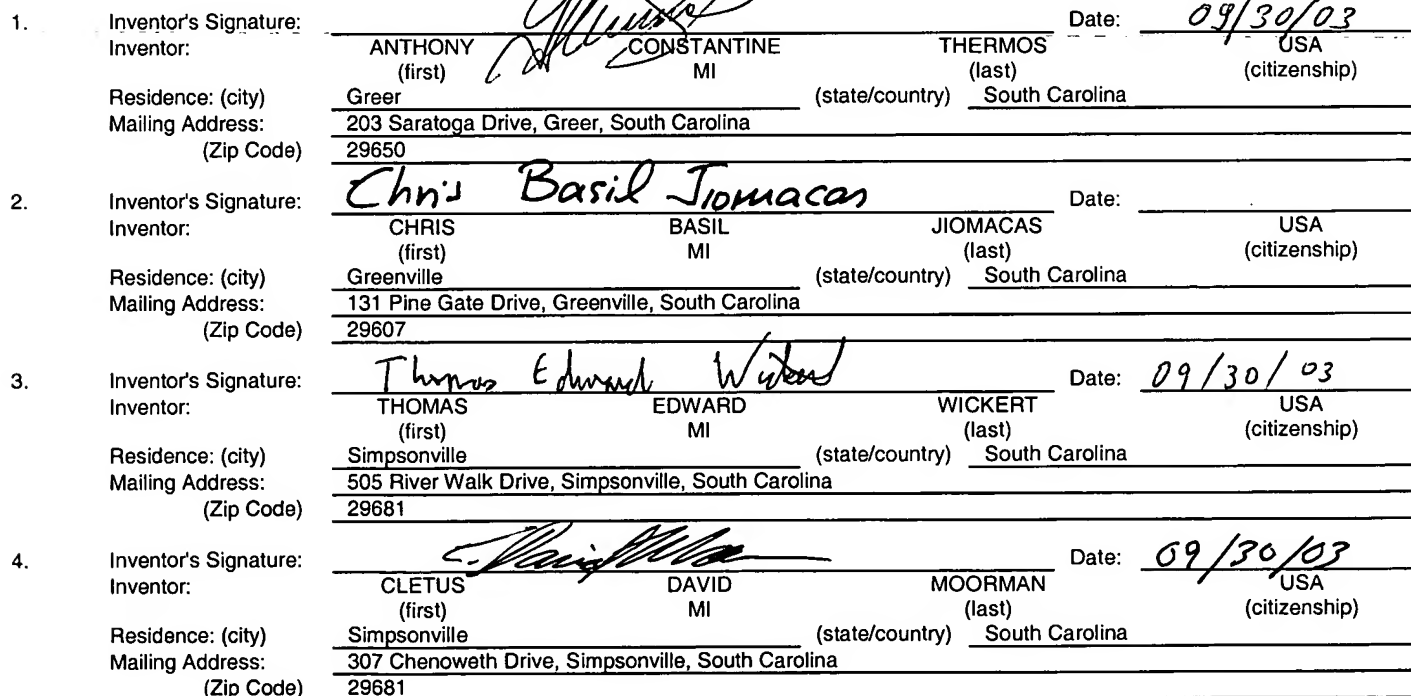 1. Inventor's Signature: Date: 09/30/03
Inventor: ANTHONY CONSTANTINE THERMOS USA
(first) MI (last) (citizenship)
Residence: (city) Greer (state/country) South Carolina
Mailing Address: 203 Saratoga Drive, Greer, South Carolina
(Zip Code) 29650
2. Inventor's Signature: Chris Basil Jiomacas Date:
Inventor: CHRIS BASIL JIOMACAS USA
(first) MI (last) (citizenship)
Residence: (city) Greenville (state/country) South Carolina
Mailing Address: 131 Pine Gate Drive, Greenville, South Carolina
(Zip Code) 29607
3. Inventor's Signature: Thomas Edward Wickert Date: 09/30/03
Inventor: THOMAS EDWARD WICKERT USA
(first) MI (last) (citizenship)
Residence: (city) Simpsonville (state/country) South Carolina
Mailing Address: 505 River Walk Drive, Simpsonville, South Carolina
(Zip Code) 29681
4. Inventor's Signature: Date: 09/30/03
Inventor: CLETUS DAVID MOORMAN USA
(first) MI (last) (citizenship)
Residence: (city) Simpsonville (state/country) South Carolina
Mailing Address: 307 Chenoweth Drive, Simpsonville, South Carolina
(Zip Code) 29681